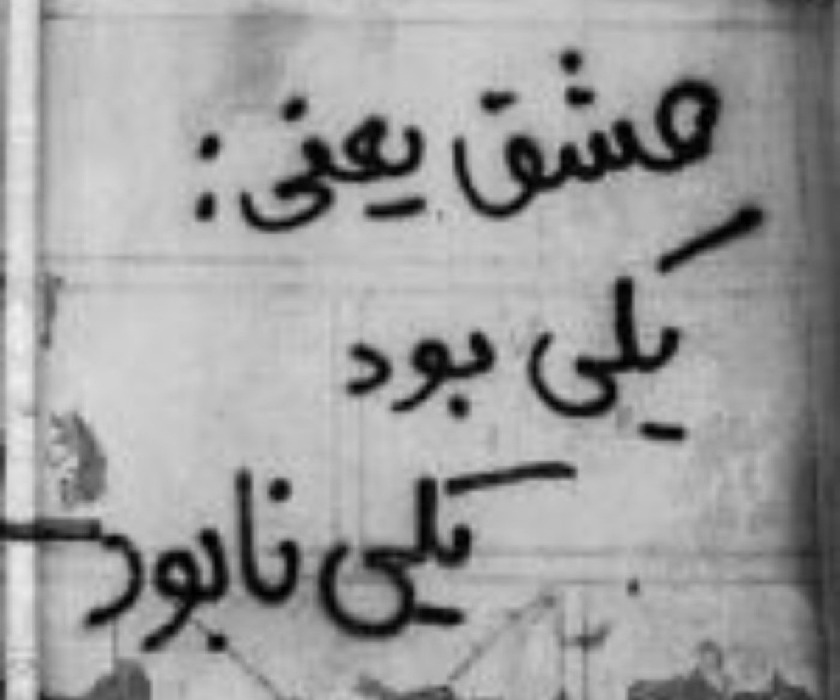 عشق یعنی:
یکی بود
یکی نابود